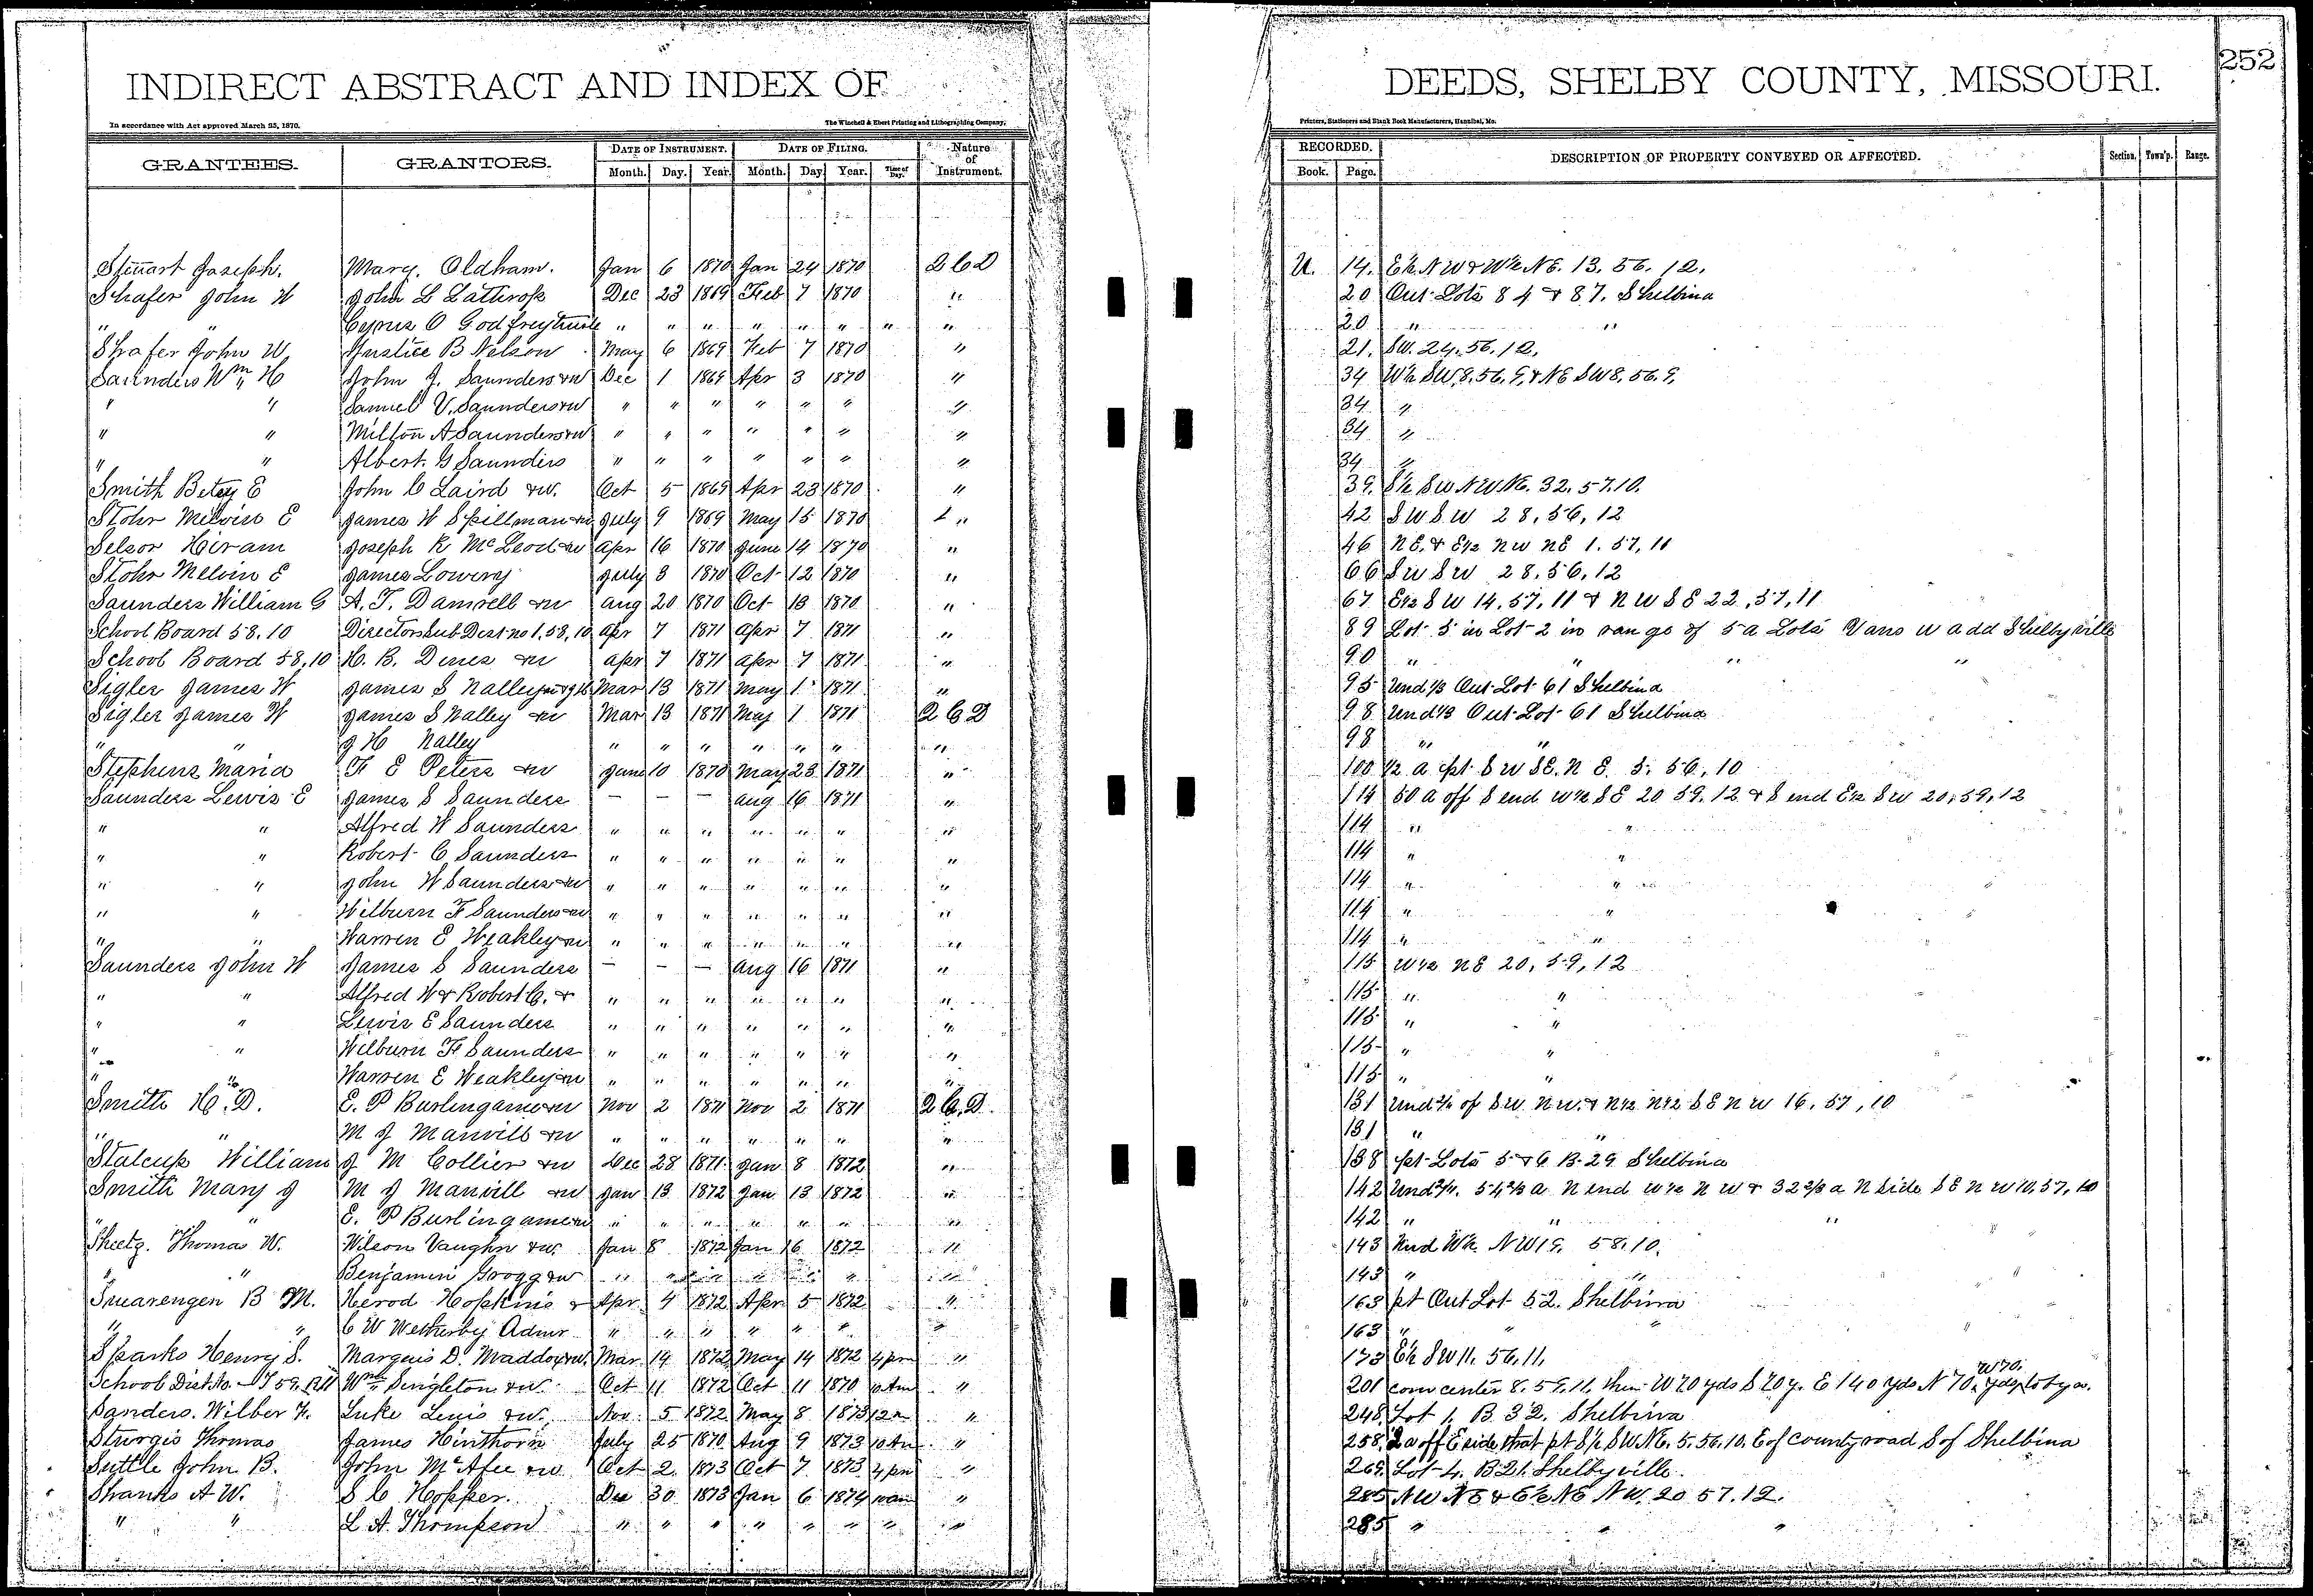 INDIRECT ABSTRACT AND INDEX OF DEEDS, SHELBY COUNTY, MISSOURI. 252
In accordance with Act approved March 25, 1870. The Winchell & Ebert Printing and Lithographing Company, Printers, Stationers and Blank Book Manufacturers, Hannibal, Mo.
GRANTEES. GRANTORS. DATE OF INSTRUMENT. DATE OF FILING. Nature of Instrument. RECORDED. DESCRIPTION OF PROPERTY CONVEYED OR AFFECTED. Section. Town'p. Range.
Month. Day. Year. Month. Day Year. Time of Day. Book. Page.
Stuart Joseph. Mary. Oldham. Jan 6 1870 Jan 24 1870 2 C D U. 14. E½ NW & W½ NE. 13. 56. 12.
Shafer John W John L Lathrop Dec 23 1869 Feb 7 1870 " 20 Out Lots 84 & 87. Shelbina
" " Cyrus O Godfrey " " " " " " " " 20 " "
Shafer John W. B Nelson May 6 1869 Feb 7 1870 " 21. SW. 24. 56. 12.
Saunders Wm H John J. Saunders &w Dec 1 1869 Apr 3 1870 " 34 W½ SW, 8. 56. 9, & NE SW 8. 56. 9,
" " Samuel V. Saunders &w " " " " " " " 34 "
" " Milton A Saunders &w " " " " " " " 34 "
" " Albert. G Saunders " " " " " " " 34 "
Smith Betsy E John C Laird &w. Oct 5 1869 Apr 23 1870 " 39. S½ SW NW NE. 32. 57. 10.
Stohr Melvin E James W Spillman &w July 9 1869 May 15 1870 " 42 SW SW 28, 56, 12
Selsor Hiram Joseph R McLeod &w Apr 16 1870 June 14 1870 " 46 NE. & E½ NW NE 1. 57, 11
Stohr Melvin E James Lowery July 8 1870 Oct 12 1870 " 66 SW SW 28. 56, 12
Saunders William G A. T. Damrell &w Aug 20 1870 Oct 18 1870 " 67 E½ SW 14, 57, 11 & NW SE 22, 57, 11
School Board 58. 10 Directors Sub Dist no 1, 58, 10 Apr 7 1871 Apr 7 1871 " 89 Lot 5 in Lot 2 in range of 5 a Lots W add Shelbyville
School Board 58, 10 H. B. Dines &w Apr 7 1871 Apr 7 1871 " 90 " " " "
Sigler James W James S Nalley Mar 13 1871 May 1 1871 " 95 Und ⅓ Out Lot 61 Shelbina
Sigler James W James S Nalley &w Mar 13 1871 May 1 1871 2 C D 98 Und ⅓ Out Lot 61 Shelbina
" " J H Nalley " " " " " " " 98 " "
Stephens Maria F E Peters &w June 10 1870 May 23 1871 " 100 ½ a pt SW SE. NE. 5. 56, 10
Saunders Lewis E James S Saunders — — — Aug 16 1871 " 114 50 a off S end W½ SE 20 59. 12 & S end E½ SW 20, 59, 12
" " Alfred W Saunders " " " " " " " 114 " "
" " Robert C Saunders " " " " " " " 114 " "
" " John W Saunders &w " " " " " " " 114 " "
" " Wilburn F Saunders &w " " " " " " " 114 " "
" " Warren E Weakley &w " " " " " " " 114 " "
Saunders John W James S Saunders — — — Aug 16 1871 " 115 W½ NE 20, 59, 12
" " Alfred W & Robert C. & " " " " " " " 115 " "
" " Lewis E Saunders " " " " " " " 115 " "
" " Wilburn F Saunders " " " " " " " 115 " "
" " Warren E Weakley &w " " " " " " " 115 " "
Smith H. D. E. P Burlingame &w Nov 2 1871 Nov 2 1871 2 C. D. 131 of SW NW. & N½ N½ SE NW 16, 57, 10
" " M J Manvill &w " " " " " " " 131 " "
Stalcup William J M Collier &w Dec 28 1871 Jan 8 1872 " 138 pt Lots 5 & 6 B. 29 Shelbina
Smith Mary J M J Manvill &w Jan 13 1872 Jan 13 1872 " 142 54⅔ a N end W½ NW & 32⅔ a N side SE NW 10, 57, 10
" " E. P Burlingame &w " " " " " " " 142 " " "
Sheetz. Thomas W. Wilson Vaughn &w. Jan 8 1872 Jan 16 1872 " 143 Und W½ NW 19. 58. 10.
" " Benjamin Grogg &w " " " " " " " 143 " "
Smearengen B M. Herod Hopkins & Apr 4 1872 Apr 5 1872 " 163 pt Out Lot 52. Shelbina
" " C W Wetherby Admr " " " " " " " 163 " " "
Sparks Henry S. Marquis D. Maddox &w. Mar 14 1872 May 14 1872 4 pm " 173 E½ SW 11. 56. 11.
School Dist. No. Wm Singleton &w. Oct 11 1872 Oct 11 1870 10 Am " 201 com center 8. 59. 11. then W 70 yds S 70 y. E 140 yds N 70, W 70. yds to
Sanders. Wilber F. Luke Lewis &w. Nov. 5 1872 May 8 1873 12 m " 248. Lot 1. B 32. Shelbina
Sturgis Thomas James Hinthorn July 25 1870 Aug 9 1873 10 Am " 258. 2 a off E side that pt S½ SW NE. 5. 56. 10. E of County road S of Shelbina
Suttle John B. John McAfee &w Oct 2 1873 Oct 7 1873 4 pm " 269. Lot 4. B 21. Shelbyville.
Shanks A W. S C Hopper. Dec 30 1873 Jan 6 1874 10 am " 285 NW NE & E½ NE NW. 20 57. 12.
" " L A. Thompson " " " " " " " " 285 " " "